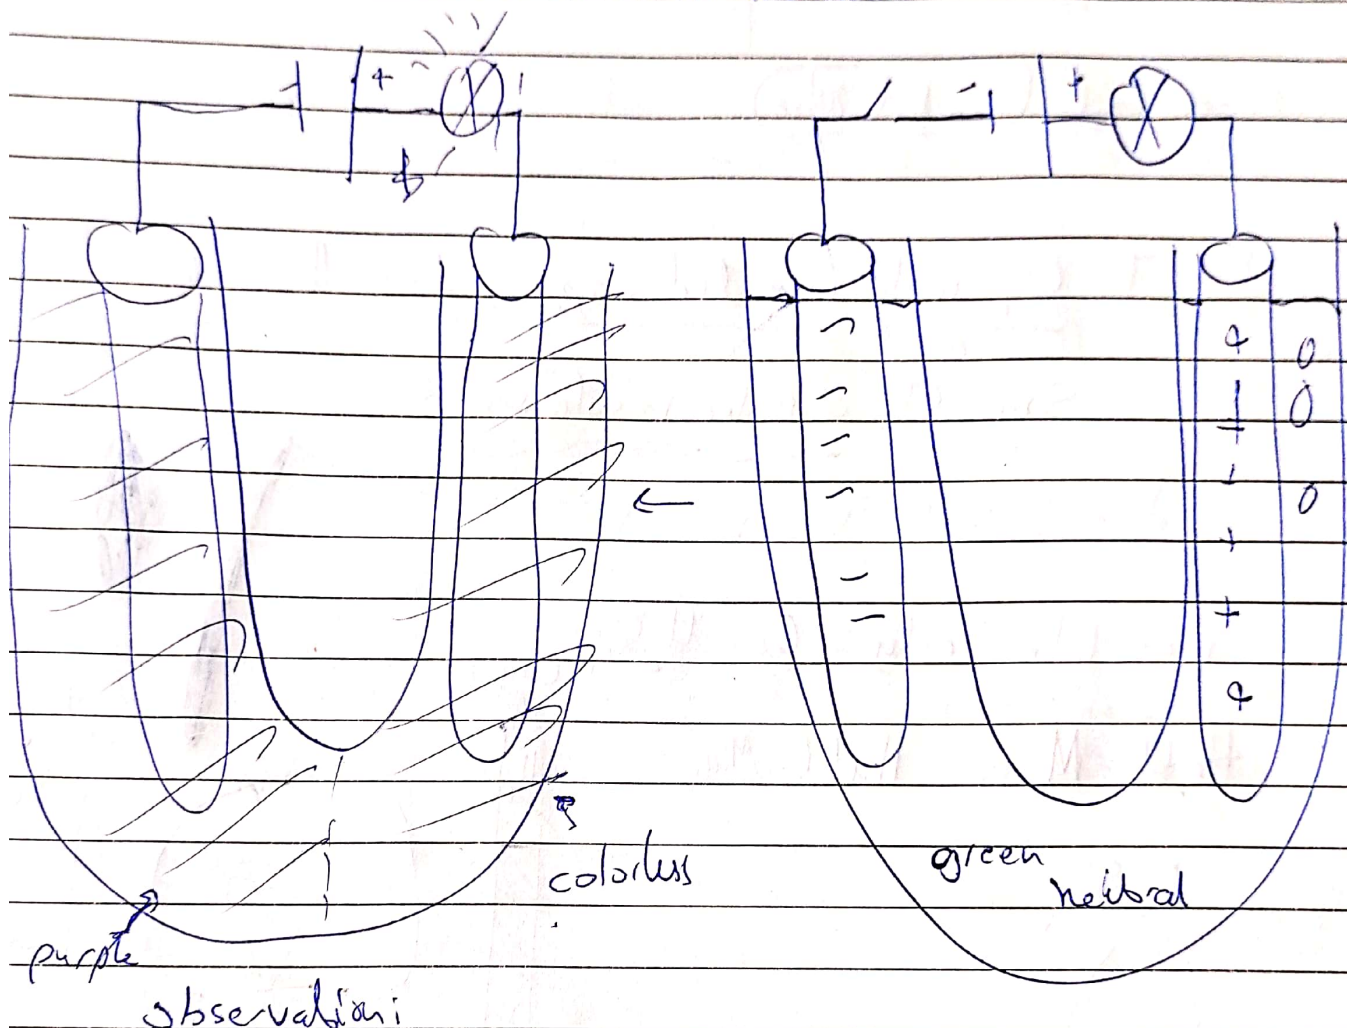 +
- +
- + 0
- + 0
- +
- + 0
+
- +
- +
colorless
green
neutral
purple
observation: